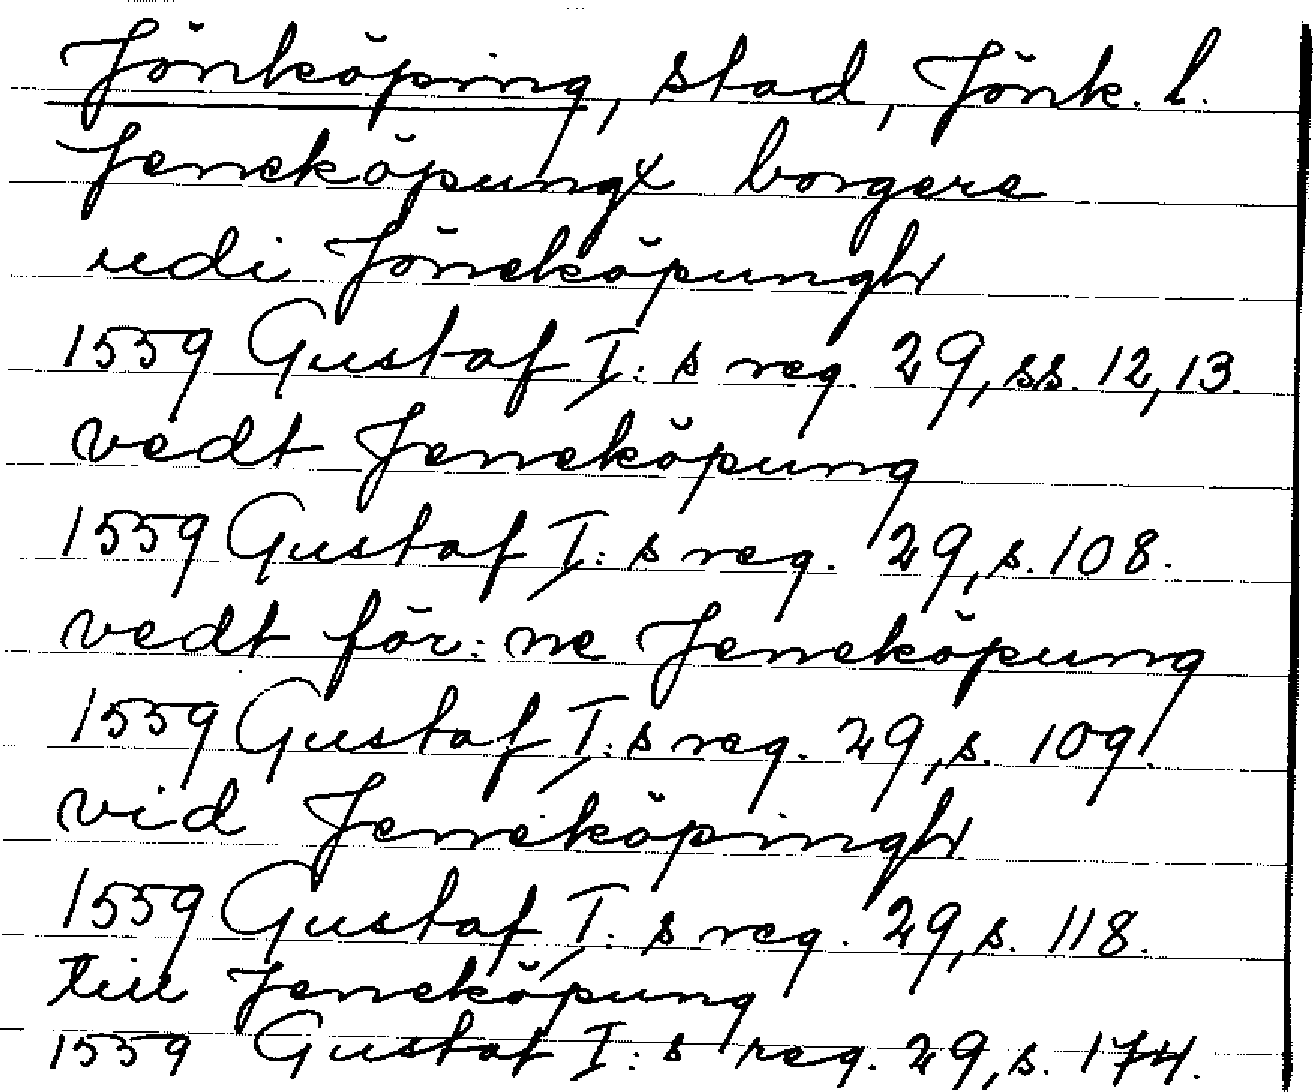 Jönköping, stad, Jönk. l.
Jeneköpungx borgere
udi Jöneköpungh
1559 Gustaf I:s reg. 29, ss. 12, 13.
vedt Jeneköpung
1559 Gustaf I:s reg. 29, s. 108.
vedt för:ne Jeneköpung
1559 Gustaf I:s reg. 29, s. 109.
vid Jeneköpingh
1559 Gustaf I:s reg. 29, s. 118.
till Jeneköpung
1559 Gustaf I:s reg. 29, s. 174.